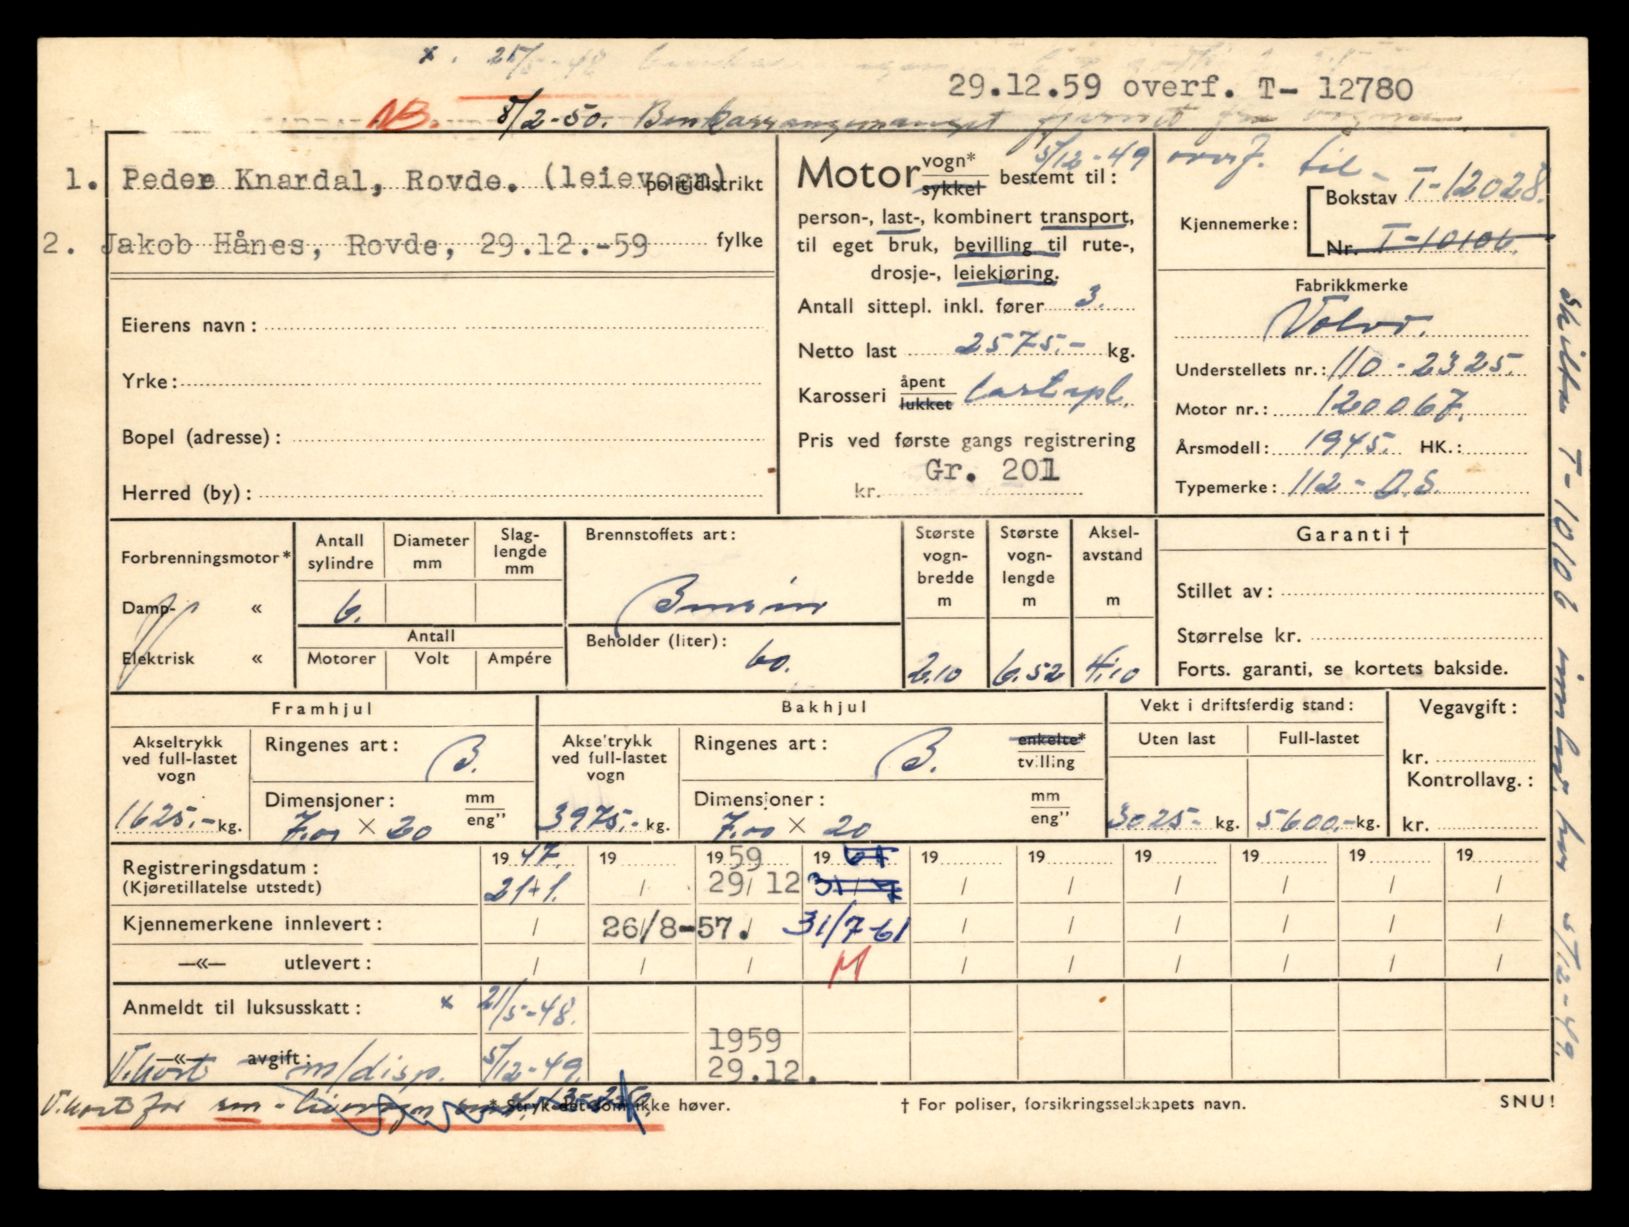 x. 25/5-48
29.12.59 overf. T- 12780
NB. 8/2-50. Benkarrangemanget fjernet fra vognen
1. Peder Knardal, Rovde. (leievogn) politidistrikt
2. Jakob Hånes, Rovde, 29.12.-59 fylke
Eierens navn:
Yrke:
Bopel (adresse):
Herred (by):
Motor vogn* sykkel bestemt til: 5/12-49
person-, last-, kombinert transport,
til eget bruk, bevilling til rute-,
drosje-, leiekjøring.
Antall sittepl. inkl. fører 3.
Netto last 2575.- kg.
Karosseri åpent lukket lastepl.
Pris ved første gangs registrering
Gr. 201
kr.
overf. til -
Kjennemerke: Bokstav T-12028.
Nr. T-10106.
Fabrikkmerke
Volvo.
Understellets nr.: 110-2325.
Motor nr.: 120067.
Årsmodell: 1945. HK.:
Typemerke: 112 - D.S.
Forbrenningsmotor*
Damp- «
Elektrisk «
Antall sylindre
Diameter mm
Slag-lengde mm
6.
Antall
Motorer Volt Ampére
Brennstoffets art:
Bensin
Beholder (liter):
60.
Største vogn-bredde m
2.10
Største vogn-lengde m
6.52
Aksel-avstand m
4.10
Garanti †
Stillet av:
Størrelse kr.
Forts. garanti, se kortets bakside.
Framhjul
Akseltrykk ved full-lastet vogn
1625.- kg.
Ringenes art: B.
Dimensjoner: mm eng"
7.00 × 20
Bakhjul
Akseltrykk ved full-lastet vogn
3975.- kg.
Ringenes art: B. enkelte* tvilling
Dimensjoner: mm eng"
7.00 × 20
Vekt i driftsferdig stand:
Uten last Full-lastet
3025- kg. 5600.- kg.
Vegavgift:
kr.
Kontrollavg.:
kr.
Registreringsdatum: 19 47. 19 19 59 19 61 19 19 19 19 19 19
(Kjøretillatelse utstedt) 21/1. / 29/12 31/7 / / / / / /
Kjennemerkene innlevert: / 26/8-57. / 31/7-61 / / / / / /
—«— utlevert: / / / M / / / / / /
Anmeldt til luksusskatt: x 21/5-48.
—«— avgift: 1959
V.kort m/disp. 5/12-49. 29.12.
V.kort for
* Stryk det som ikke høver. † For poliser, forsikringsselskapets navn. SNU!
Skilter T-10106 innlev. her 5/12-49.